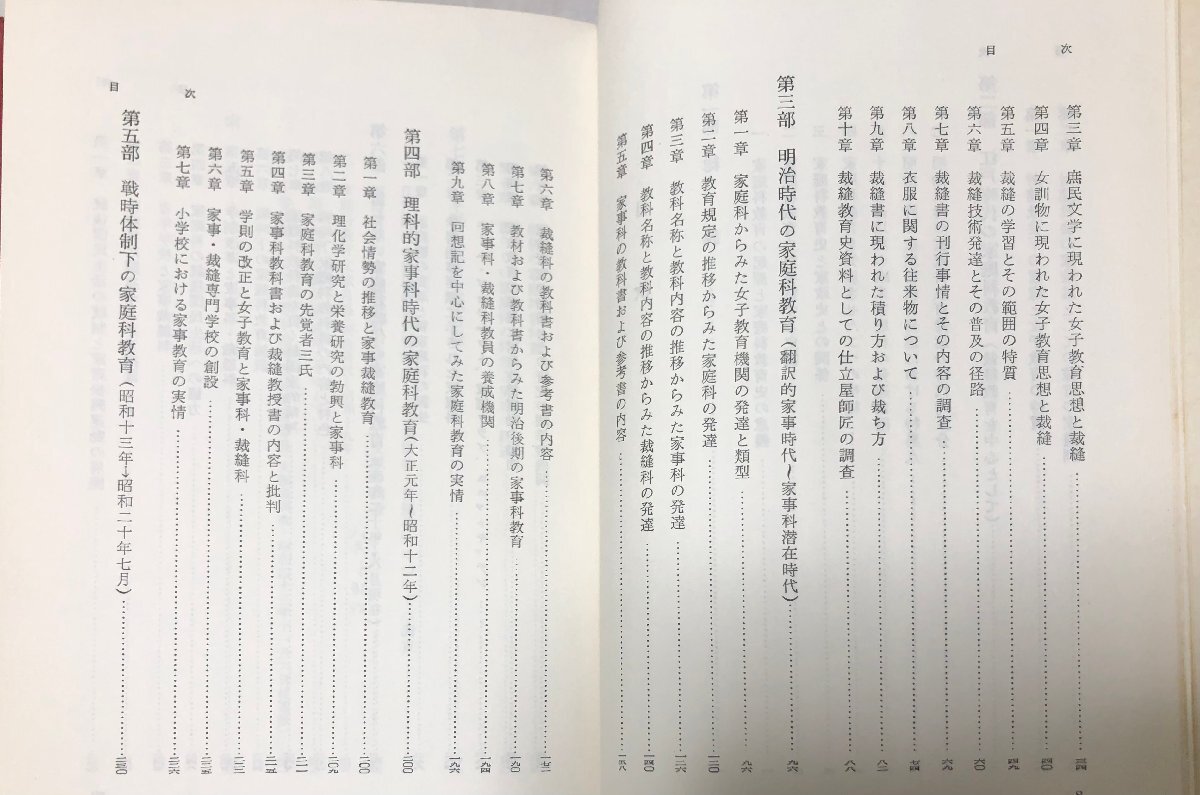 目次
第三章　庶民文学に現われた女子教育思想と裁縫……三四
第四章　女訓物に現われた女子教育思想と裁縫……四〇
第五章　裁縫の学習とその範囲の特質……四九
第六章　裁縫技術発達とその普及の径路……六〇
第七章　裁縫書の刊行事情とその内容の調査……六九
第八章　衣服に関する往来物について……七四
第九章　裁縫書に現われた積り方および裁ち方……八二
第十章　裁縫教育史資料としての仕立屋師匠の調査……八八
第三部　明治時代の家庭科教育（翻訳的家事時代～家事科潜在時代）……九六
第一章　家庭科からみた女子教育機関の発達と類型……九六
第二章　教育規定の推移からみた家庭科の発達……一二〇
第三章　教科名称と教科内容の推移からみた家事科の発達……一二六
第四章　教科名称と教科内容の推移からみた裁縫科の発達……一四〇
第五章　家事科の教科書および参考書の内容……一五八
第六章　裁縫科の教科書および参考書の内容……一七二
第七章　教材および教科書からみた明治後期の家事科教育……一九〇
第八章　家事科・裁縫科教員の養成機関……一九四
第九章　回想記を中心にしてみた家庭科教育の実情……一九六
第四部　理科的家事科時代の家庭科教育（大正元年～昭和十二年）……二〇〇
第一章　社会情勢の推移と家事裁縫教育……二〇〇
第二章　理化学研究と栄養研究の勃興と家事科……二〇九
第三章　家庭科教育の先覚者三氏……二一一
第四章　家事科教科書および裁縫教授書の内容と批判……二一五
第五章　学則の改正と女子教育と家事科・裁縫科……二二三
第六章　家事・裁縫専門学校の創設……二二五
第七章　小学校における家事教育の実情……二二六
目次
第五部　戦時体制下の家庭科教育（昭和十三年→昭和二十年七月）……二三〇